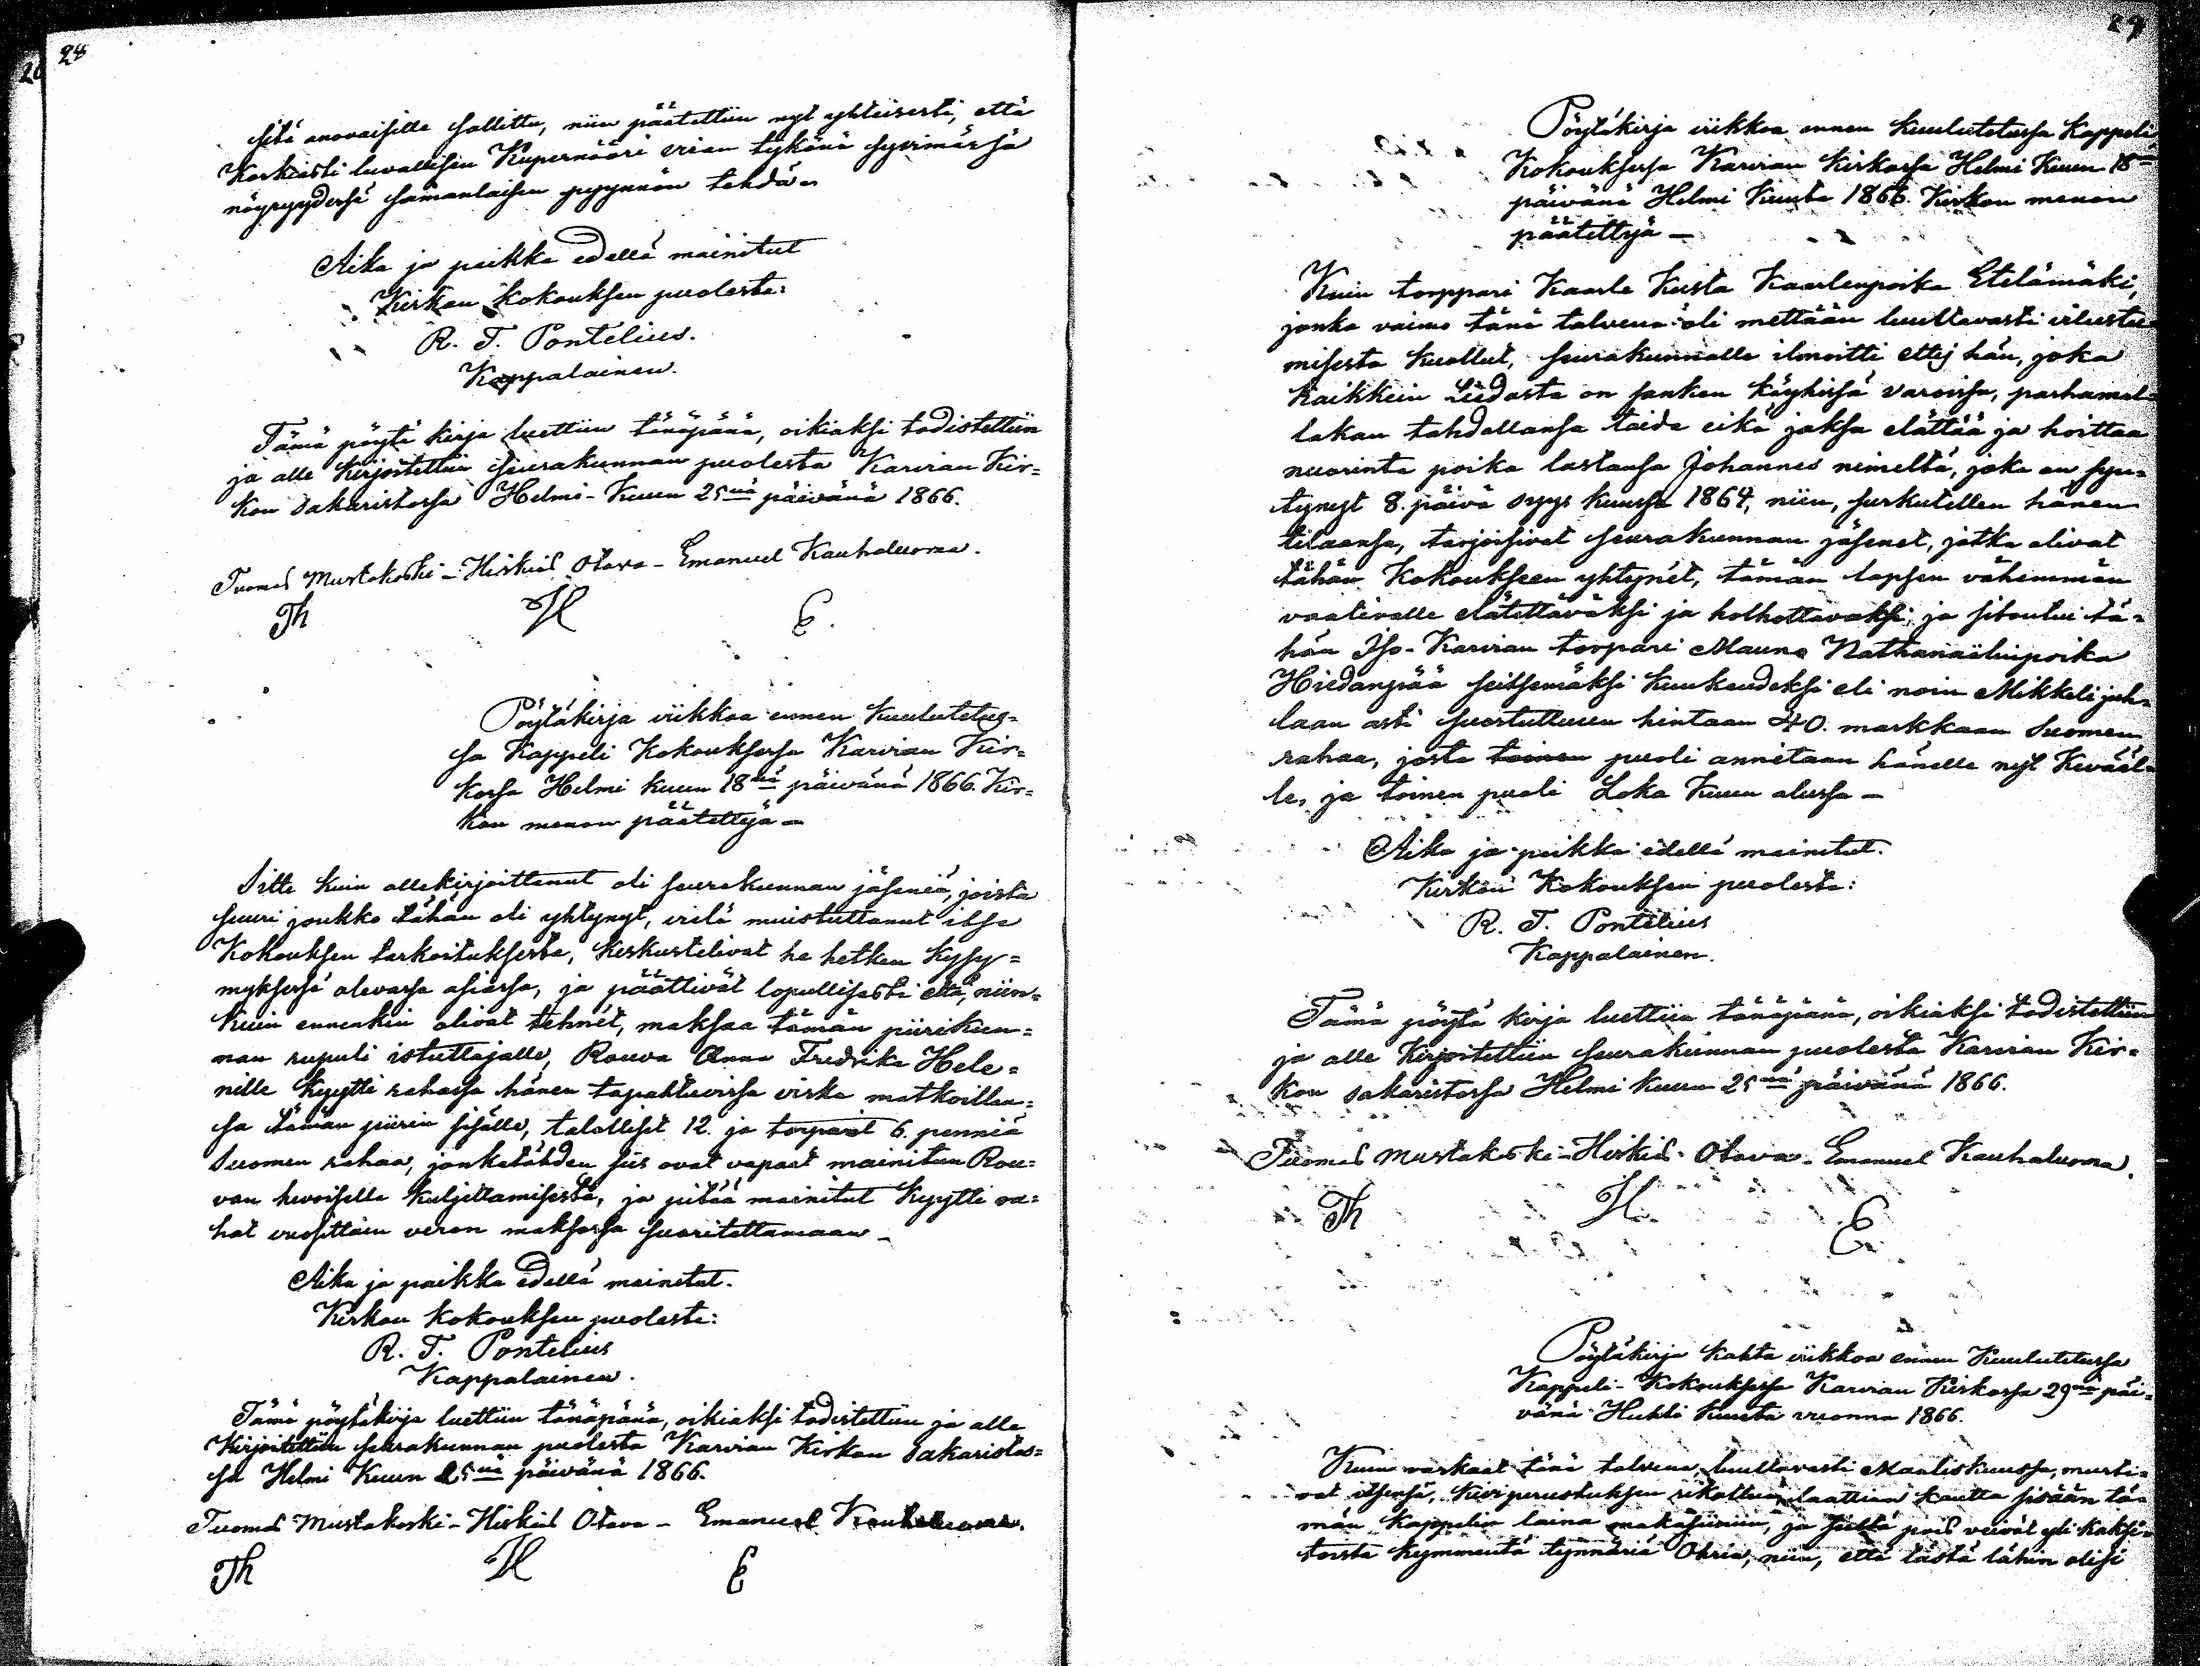 28
sitä anovaisille sallittu, niin päätettiin nyt yhteisesti, että
Korkiasti luvallisen Kupernööri viran tykönä syvimässä
nöyryydessä samanlaisen pyynnön tehdä -
Aika ja paikka edellä mainitut
Kirkon Kokouksen puolesta:
R. T. Pontelius.
Kappalainen.
Tämä pöytä kirja luettiin tänäpänä, oikiaksi todistettiin
ja alle Kirjoitettiin seurakunnan puolesta Karvian Kir=
kon Sakaristossa Helmi-Kuun 25nä päivänä 1866.
Tuomas Mustakoski - Hiskias Otava - Emanuel Kauhaluoma.
Th H E.
Pöytäkirja viikkoa ennen Kuulutetus=
sa Kappeli Kokouksessa Karvian Kir=
kossa Helmi kuun 18nä päivänä 1866. Kir=
kon menon päätettyä -
Sitte kuin allekirjoittanut oli seurakunnan jäseniä, joista
suuri joukko tähän oli yhtynyt, vielä muistuttanut itse
Kokouksen tarkoituksesta, keskustelivat he hetken kysy=
myksessä olevassa asiassa, ja päättivät lopullisesti että, niin=
kuin ennenkin olivat tehnét, maksaa tämän piirikun=
nan rupuli istuttajalle, Rouva Anna Fredrika Hele=
nille kyyti rahassa hänen tapahtuvissa virka matkoillan=
sa tämän piirin sisälle, talolliset 12. ja torparit 6. penniä
Suomen rahaa, jonkatähden siis ovat vapaat mainitun Rou=
van hevoisella kuljettamisesta, ja pitää mainitut kyyti ra=
hat vuosittain veron maksossa suoritettamaan -
Aika ja paikka edellä mainitut.
Kirkon Kokouksen puolesta:
R. T. Pontelius
Kappalainen.
Tämä pöytäkirja luettiin tänäpänä, oikiaksi todistettiin ja alle
Kirjoitettiin seurakunnan puolesta Karvian Kirkon Sakaristos=
sa Helmi Kuun 25nä päivänä 1866.
Tuomas Mustakoski - Hiskias Otava - Emanuel Kauhaluoma.
Th H E
29
Pöytäkirja viikkoa ennen kuulutetussa Kappeli
Kokouksessa Karvian Kirkossa Helmi Kuun 18nä
päivänä Helmi Kuuta 1866. Kirkon menon
päätettyä -
Kuin torppari Kaarle Kusta Kaarlenpoika Etelämäki,
jonka vaimo tänä talvena oli mettään luultavasti vilustu=
misesta kuollut, seurakunnalle ilmoitti ettej hän, joka
kaikkein tiedosta on sanken köyhissä varoissa, parhamal=
lakan tahdollansa taida eikä jaksa elättää ja hoittaa
nuorinta poika lastansa Johannes nimeltä, joka on syn=
tynyt 8. päivä Syys kuussa 1864, niin, surkutellen hänen
tilaansa, tarjoisivat seurakunnan jäsenet, jotka olivat
tähän Kokoukseen yhtynét, tämän lapsen vähemmän
vaativalle elätettäväksi ja holhottavaksi, ja sitoutui tä=
hän Iso-Karvian torpari Mauno Nathanaëlinpoika
Hiedanpää seitsemäksi kuukaudeksi eli noin Mikkeli juh=
laan asti suostuttuun hintaan 40. markkaan Suomen
rahaa, josta toinen puoli annetaan hänelle nyt Kevääl=
le, ja toinen puoli Loka Kuun alussa -
Aika ja paikka edellä mainitut.
Kirkon Kokouksen puolesta:
R. T. Pontelius
Kappalainen.
Tämä pöytä kirja luettiin tänäpänä, oikiaksi todistettiin
ja alle Kirjoitettiin seurakunnan puolesta Karvian Kir=
kon Sakaristossa Helmi kuun 25nä päivänä 1866.
Tuomas Mustakoski - Hiskias Otava - Emanuel Kauhaluoma.
Th H E
Pöytäkirja kahta viikkoa ennen Kuulutetussa
Kappeli-Kokouksessa Karvian Kirkossa 29nä päi=
vänä Huhti kuuta vuonna 1866.
Kuin varkaat tänä talvena, luultavasti Maaliskuussa, murti=
vat itsensä, kiviperustuksen rikottua, laattian kautta sisään tä=
män Kappelin laina makasiiniin, ja sieltä pois veivät yli kaksi=
toista kymmentä tynnäriä Ohria, niin, että tästä lähin olisi